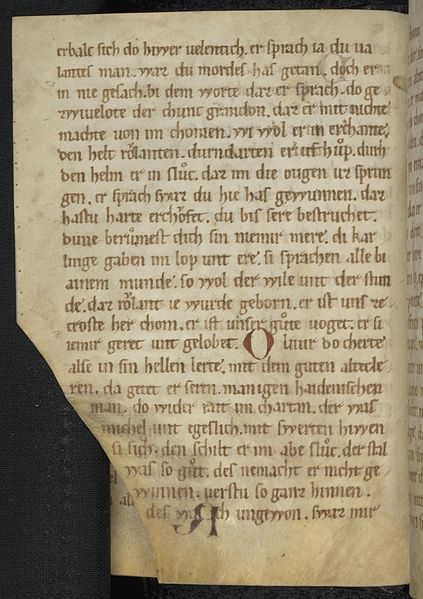 erbalc sich do hiwer uelentich. er sprach ia du ua
lantes man. waz du mordes has getan. doch er
in nie gesach. bi dem worte daz er sprach. do ge
zwiuelote der chunc grandon. daz er mit nichte
machte von im chomen. wi wol er in erchante.
den helt rölanten. durndarten er uf hůp. durh
den helm er in slůc. daz im die ougen uz sprun
gen. er sprach swaz du hie has gewunnen. daz
hastu harte erchöfet. du bis sere bestruchet.
dune berůmest dich sin niemir mere. di kar
linge gaben im lop unt ere. si sprachen alle bi
ainem munde. so wol der wile unt der stun
de. daz rölant ie wurde geborn. er ist uns ze
troste her chom. er ist unser gůte uoget. er si
iemir geret unt gelobet. O liuir do cherte
alse in sin hellen lerte. mit dem guten alteclere
ren. da getet er seren. manigen haidenischen
man. do wider rait im chartan. der was
michel unt egeslich. mit swerten hiwen
si sich. den schilt er im abe slůc. der stal
was so gůt. des nemacht er nicht ge
winnen. uerstu so ganz hinnen.
des was ich ungewon. swaz mir